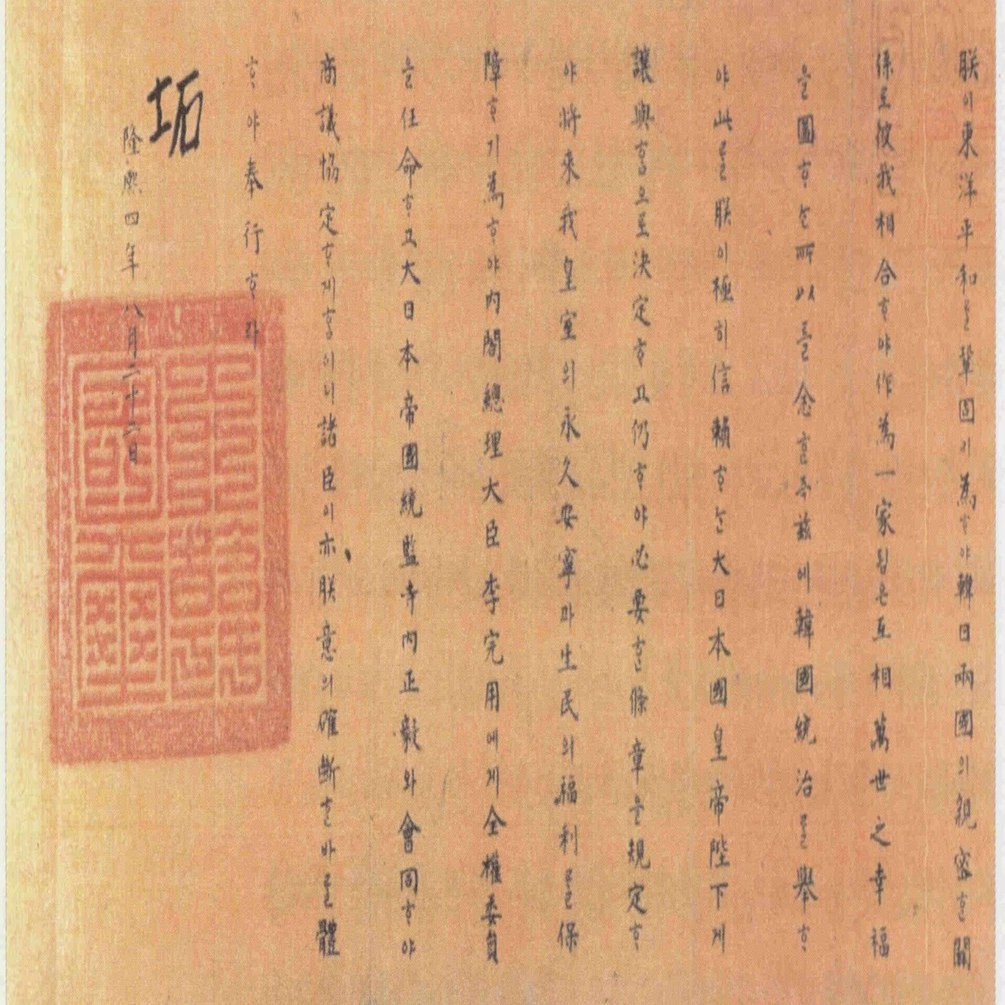 朕이東洋平和를鞏固기爲ᄒᆞ야韓日兩國의親密ᄒᆞᆫ關
係로彼我相合ᄒᆞ야作爲一家ᄒᆞᆷ은互相萬世之幸福
을圖ᄒᆞᄂᆞᆫ所以를念ᄒᆞᆫ즉玆에韓國統治를擧ᄒᆞ
야此를朕이極히信賴ᄒᆞᄂᆞᆫ大日本國皇帝陛下게
讓與ᄒᆞᆷ으로決定ᄒᆞ고仍ᄒᆞ야必要ᄒᆞᆫ條章을規定ᄒᆞ
야將來我皇室의永久安寧과生民의福利를保
障ᄒᆞ기爲ᄒᆞ야內閣總理大臣李完用에게全權委員
을任命ᄒᆞ고大日本帝國統監寺內正毅와會同ᄒᆞ야
商議協定ᄒᆞ게ᄒᆞᆷ이니諸臣이亦朕意의確斷ᄒᆞᆫ바를體
ᄒᆞ야奉行ᄒᆞ라
坧
隆熙四年八月二十二日